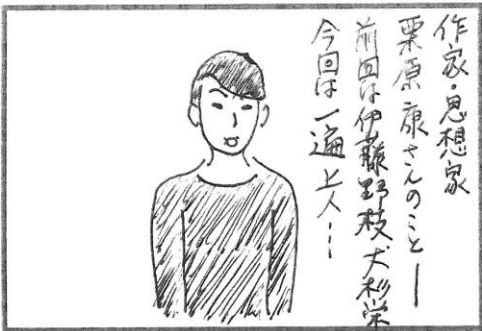 作家・思想家
栗原康さんのこと―
前回は伊藤野枝 大杉栄
今回は一遍上人…